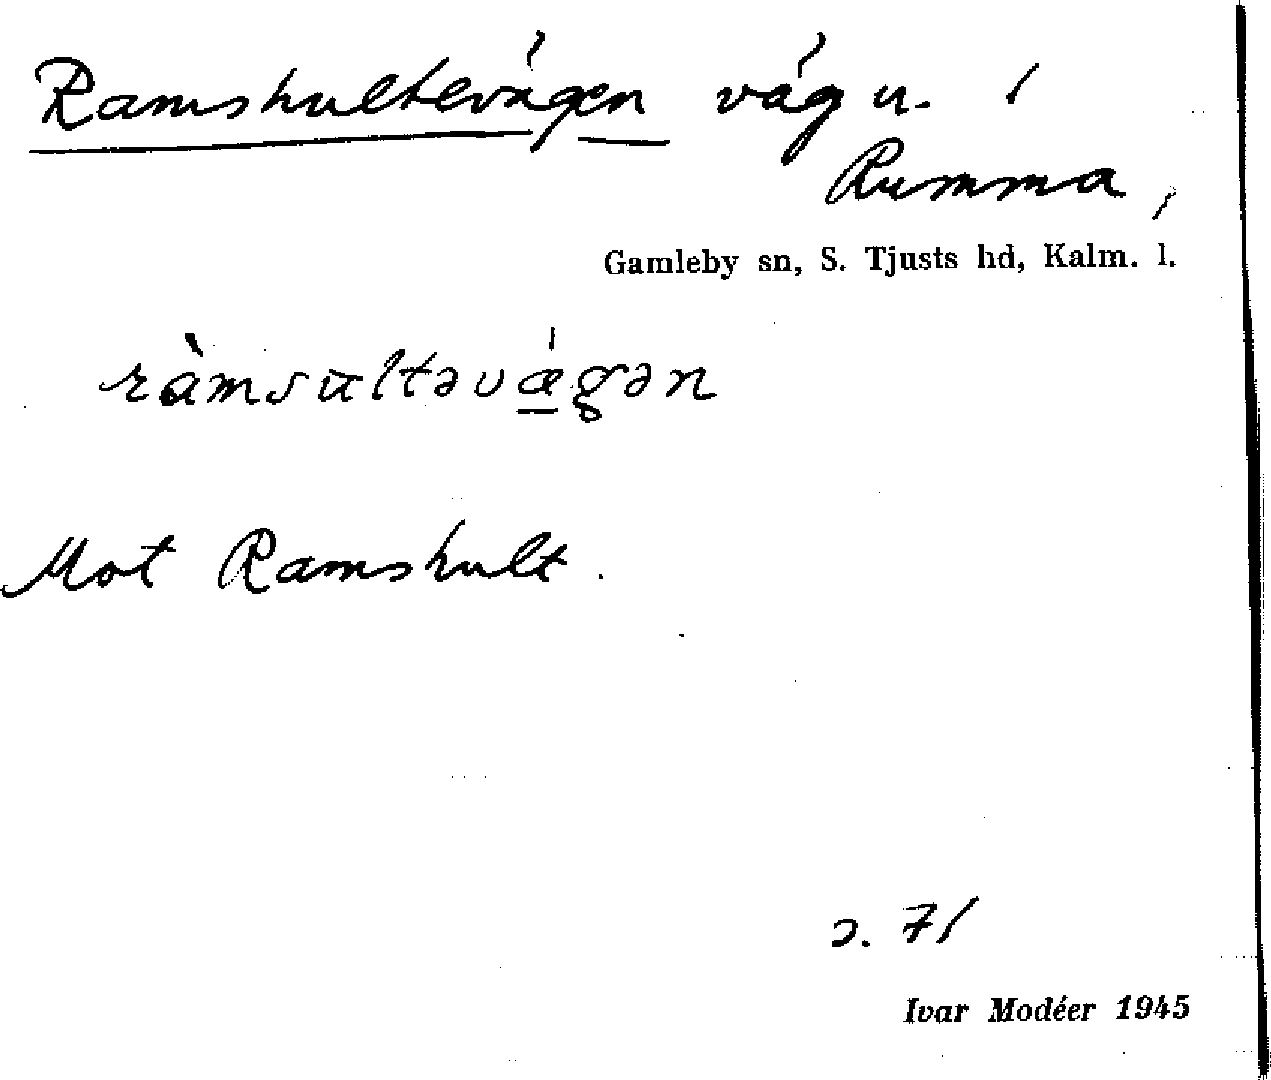 Ramshultevägen väg u. i
Rumma,
Gamleby sn, S. Tjusts hd, Kalm. l.
ràmsultəvǽgən
Mot Ramshult.
s. 71
Ivar Modéer 1945